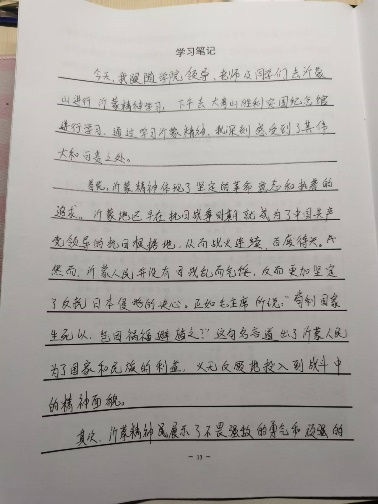 学习笔记
今天，我跟随学院领导、老师及同学们去沂蒙
山进行沂蒙精神学习，下午去大青山胜利突围纪念馆
进行学习，通过学习沂蒙精神，我深刻感受到了其伟
大和可贵之处。
首先，沂蒙精神体现了坚定的革命意志和执着的
追求。沂蒙地区早在抗日战争时期就成为了中国共产
党领导的抗日根据地，从而战火连绵，百废待兴。
然而，沂蒙人民并没有因战乱而气馁，反而更加坚定
了反抗日本侵略的决心。正如毛主席所说："苟利国家
生死以，岂因祸福避趋之？"这句名言道出了沂蒙人民
为了国家和民族的利益，义无反顾地投入到战斗中
的精神面貌。
其次，沂蒙精神展示了不畏强敌的勇气和顽强的